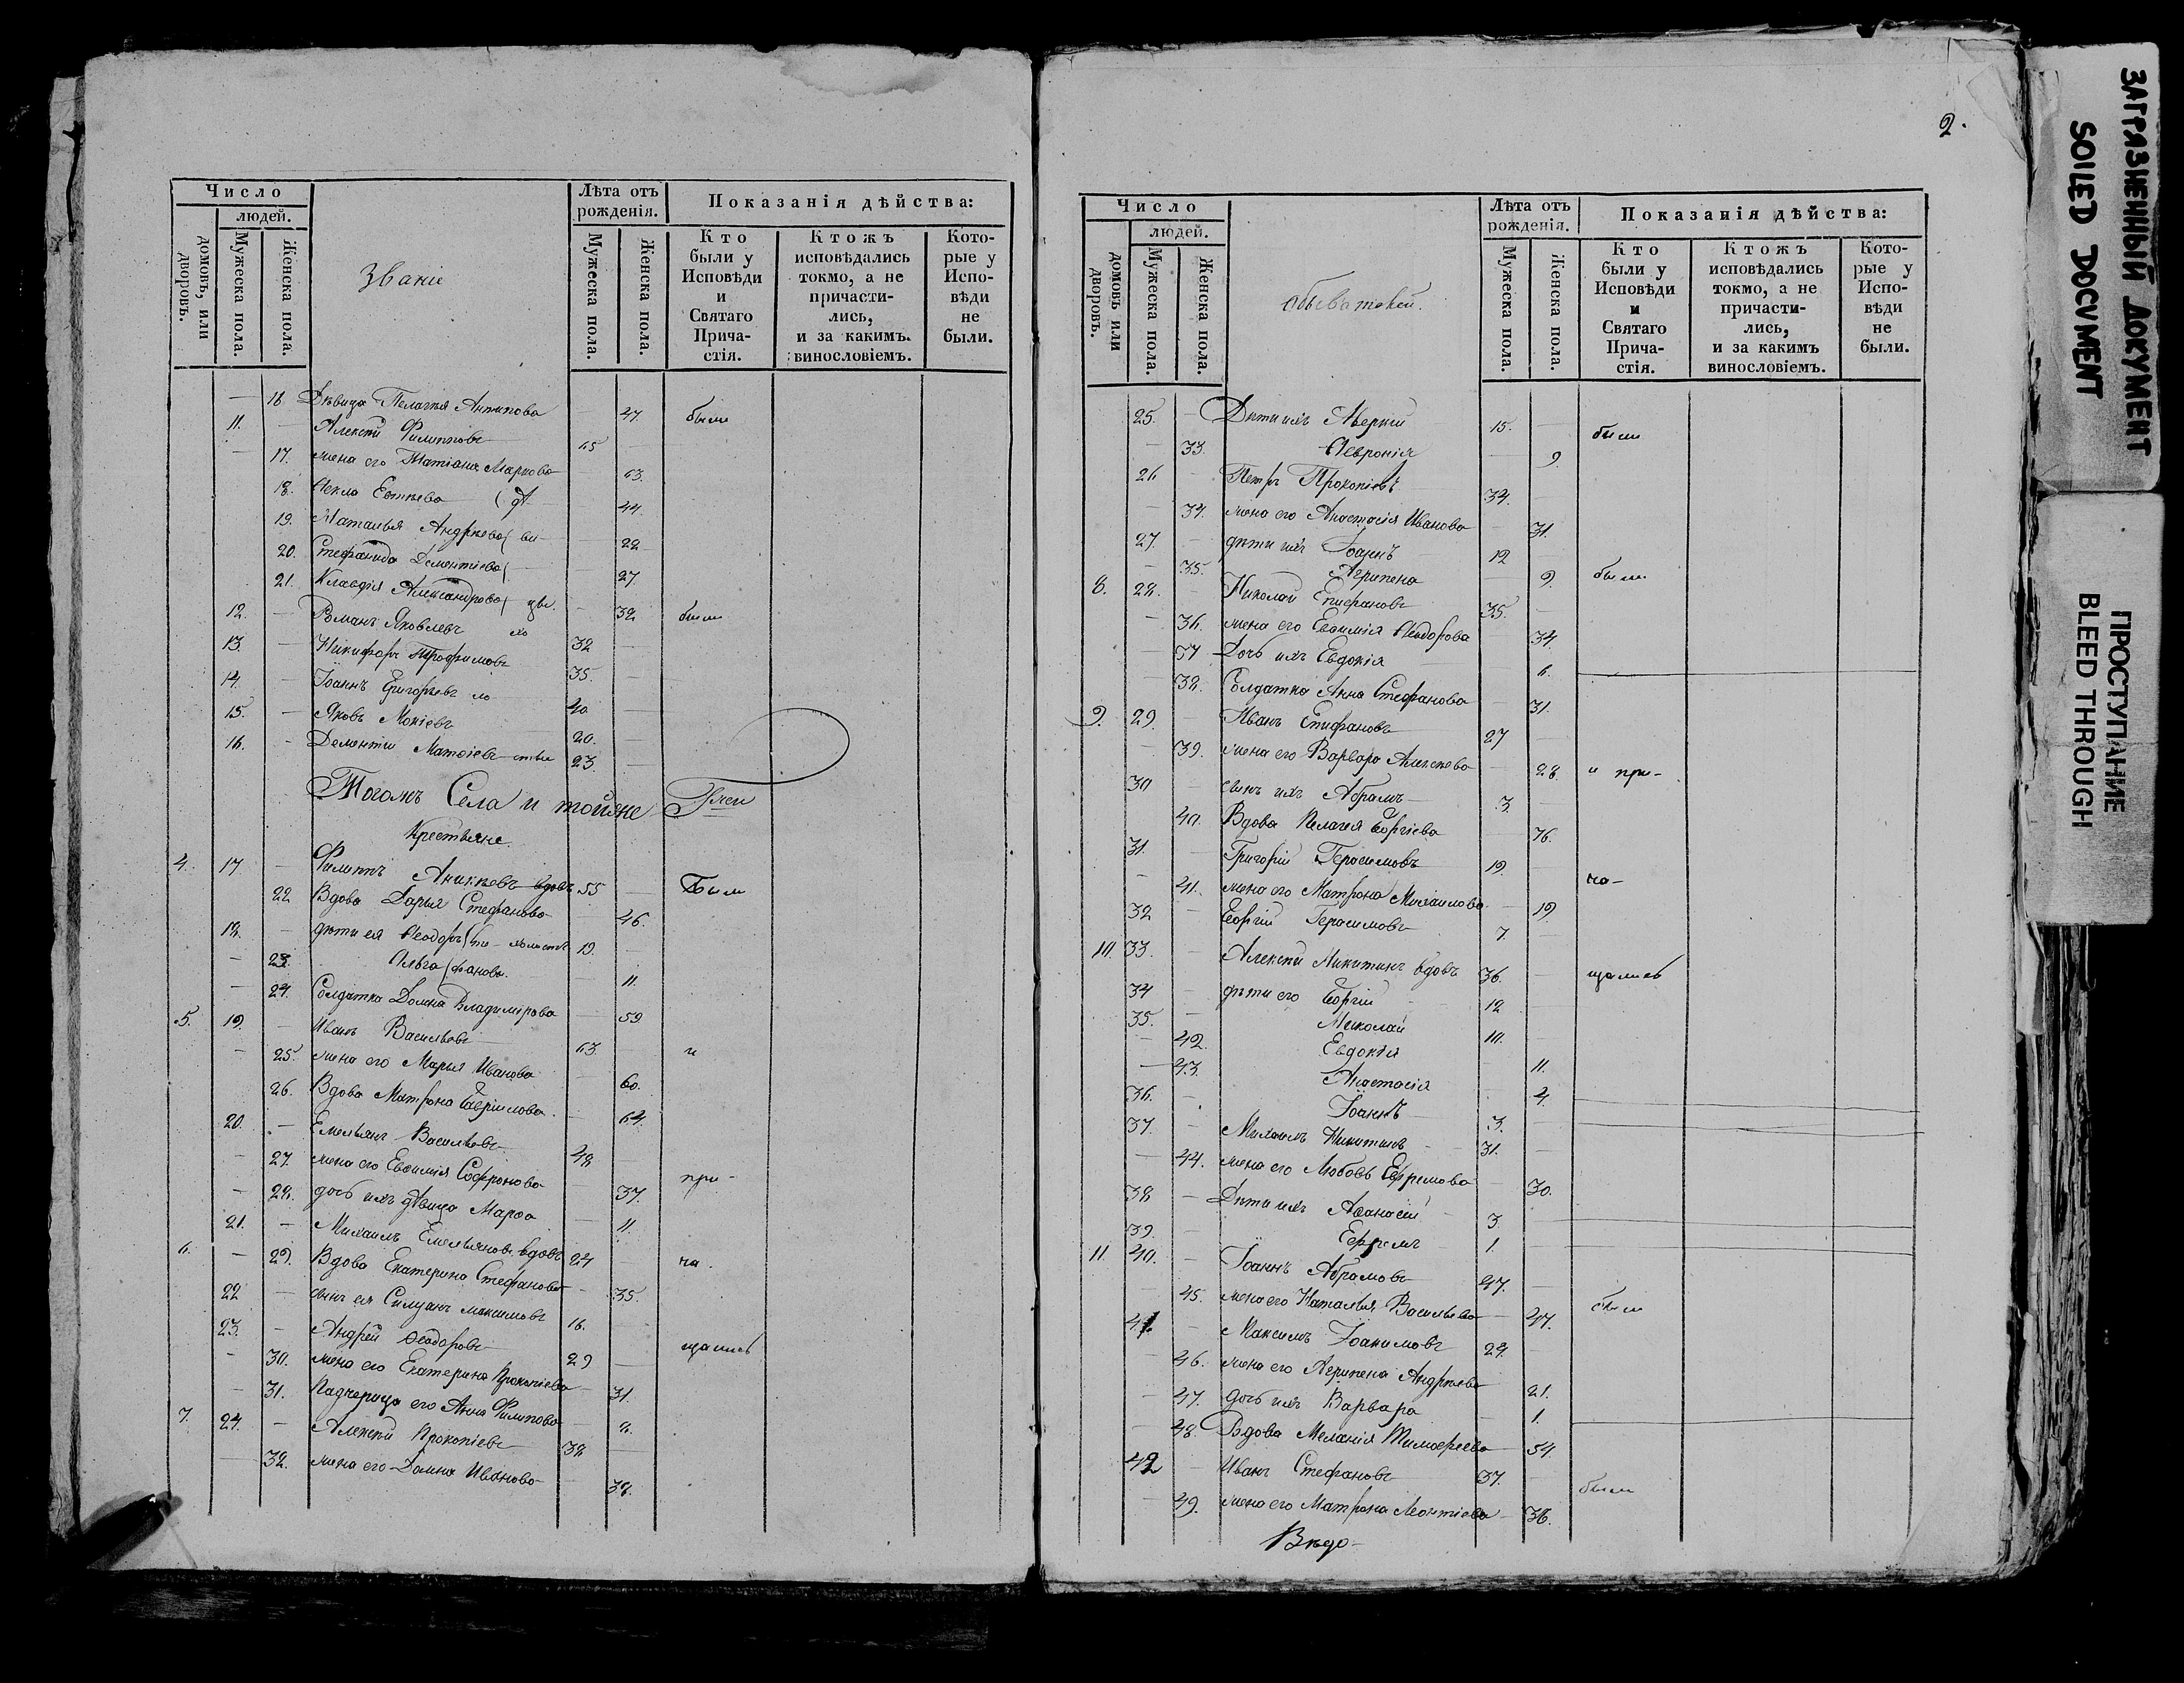 Число
людей.
домовъ, или дворовъ.
Мужеска пола.
Женска пола.
Званіе
Лѣта отъ рожденія.
Мужеска пола.
Женска пола.
Показанія дѣйства:
Кто были у Исповѣди и Святаго Прича-стія.
Ктожъ исповѣдались токмо, а не причасти-лись, и за какимъ винословіемъ.
Кото-рые у Испо-вѣди не были.
— Дѣвица Пелагия Антипова — 47. были
11. — Алексѣй Филиповъ 65 —
— 17. жена его Татіана Маркова — 63.
18. Ѳекла Евтѣева — 44.
19. Наталья Андрѣева — 22
20. Стефанида Дементіева — 27
21. Клавдія Александрова — 32 были
12. — Романъ Яковлевъ 32 —
13. — Никифоръ Трофимовъ 35. —
14. — Іоаннъ Григорьевъ 40 —
15. — Яковъ Мокіевъ 20. —
16. — Дементій Матѳіевъ 23. —
Тогожъ Села и тойже
Крестьяне.
4. 17. — Филиппъ Аникѣевъ вдовъ 55 — Были
22 Вдова Дарья Стефанова — 46.
18. — дѣти ея Ѳеодоръ 19. —
— 23. Ольга 11.
— 24. Солдатка Домна Владимірова — 59
5. 19. — Иванъ Васильевъ 63. — и
— 25. жена его Марья Иванова — 60.
26. Вдова Матрона Гавріилова — 64.
20. — Емельянъ Васильевъ 48 —
— 27. жена его Евѳимія Софронова — 37. при-
— 28. дочь ихъ дѣвица Марѳа — 11.
21. — Михаилъ Емельяновъ вдовъ 24 —
6. — 29. Вдова Екатерина Стефанова — 35. ча-
22 — сынъ ея Силуанъ Максимовъ 16. —
23. — Андрей Ѳеодоровъ 29 — щались
— 30. жена его Екатерина Прокопіева — 31.
— 31. Падчерица его Анна Филипова — 8.
7. 24. — Алексѣй Прокопіевъ 38
— 32. жена его Домна Иванова — 38.
2.
Число
людей.
домовъ или дворовъ.
Мужеска пола.
Женска пола.
обывателей.
Лѣта отъ рожденія.
Мужеска пола.
Женска пола.
Показанія дѣйства:
Кто были у Исповѣди и Святаго Прича-стія.
Ктожъ исповѣдались токмо, а не причасти-лись, и за какимъ винословіемъ.
Кото-рые у Испо-вѣди не были.
25. — Дѣти ихъ Аверкій 15. — были
— 33. Ѳевронія — 9.
26 — Петръ Прокопіевъ 34. —
— 34. жена его Анастасія Иванова — 31.
27. — дѣти ихъ Іоаннъ 12
— 35. Агрипена — 9. были
8. 28. Николай Епифановъ 35. —
— 36. жена его Евѳимія Ѳеодорова — 34.
37 Дочь ихъ Евдокія — 6.
— 38. Солдатка Анна Стефанова — 31.
9. 29. — Иванъ Епифановъ 27
— 39. жена его Варвара Алексѣева — 28. и при-
30 — сынъ ихъ Абрамъ 3. —
40. Вдова Пелагея Георгіева — 76.
31. — Григорій Герасимовъ 19. — ча-
— 41. жена его Матрона Михаилова — 19
32 — Георгій Герасимовъ 7. —
10 33. — Алексѣй Никитинъ вдовъ 36. — щались
34 — дѣти его Георгій 12
35. — Николай 10. —
— 42. Евдокія — 11.
— 43. Анастасія — 4.
36. — Іоаннъ 3. —
37. — Михаилъ Никитинъ 31. —
— 44. жена его Любовь Ефремова — 30.
38 — Дѣти ихъ Аѳанасій 3.
39. — Ефремъ 1.
11 40. — Іоаннъ Абрамовъ 47. —
— 45. жена его Наталья Васильева — 47. были
41. — Максимъ Іоакимовъ 29. —
— 46. жена его Агрипена Андрѣева — 21.
— 47. дочь ихъ Варвара — 1.
— 48. Вдова Меланія Тимоѳеева — 54.
42 — Иванъ Стефановъ 37. — были
— 49. жена его Матрона Леонтіева — 36.
Вѣдо-
ЗАГРЯЗНЕННЫЙ ДОКУМЕНТ
SOILED DOCUMENT
ПРОСТУПАНИЕ
BLEED THROUGH